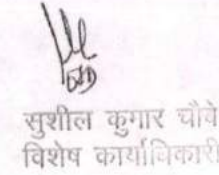 सुशील कुमार चौवे
विशेष कार्याधिकारी